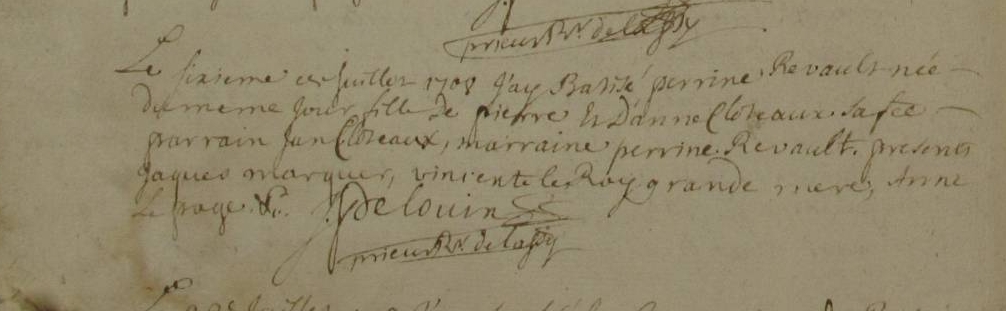 prieur Rr. de lassy
Le sixieme de Juillet 1708 J'ay Batisé perrine Revault née
du meme Jour fille de pierre Et D'anne Cloteaux sa fée
parrain Jan Cloteaux, marraine perrine Revault. presents
Jaques marquer, vincente le Roy grande mere, Anne
Le page &c. J Delouin
prieur Rr. de lassy
Le Juillet